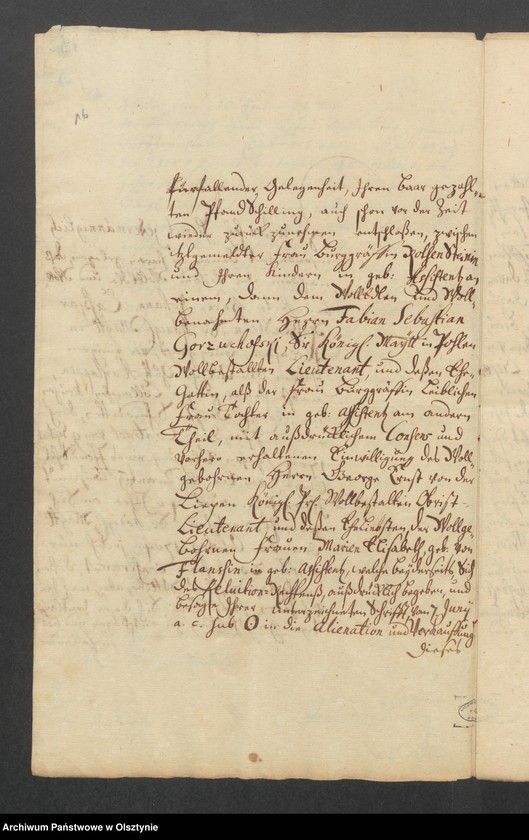 fürfallender Gelegenheit, Ihren baar gezahl-
ten Pfand Schilling, auch schon vor der Zeit
wieder zurück zunehmen entschloßen, zwischen
itzgemeldter Frau Burggräffin Rothen Steinin
und Ihren Kindern in geb: Assistentz an
einem, dann dem WollEdlen und Woll-
benahmten Herrn Fabian Sebastian
Gorzuchofski, Sr Königl. Maytt in Pohlen
Wollbestallten Lieutenant und deßen Ehe-
Gattin, alß der Frau Burggräffin Leiblichen
Frau Tochter in geb: assistentz am andern
Theil, mit außdrücklichem Consens und
vorhero erhaltenen Einwilligung des Woll
gebohrnen Herrn George Ernst von der
Liepen Königl. Pr. Wollbestallten Obrist-
Lieutenant, und deßen Eheliebsten der Wollge-
bohrnen Frauen Marien Elisabeth, geb: von
Flanssin in geb: Assistentz, welche beyderseits Sich
des Reluitions-Rechtens, außdrücklich begeben, und
besage Ihrer unterzeichneten Schrifft vom 7 Junij
a. c. sub O in die Alienation und Verkauffung
dieses
Archiwum Państwowe w Olsztynie